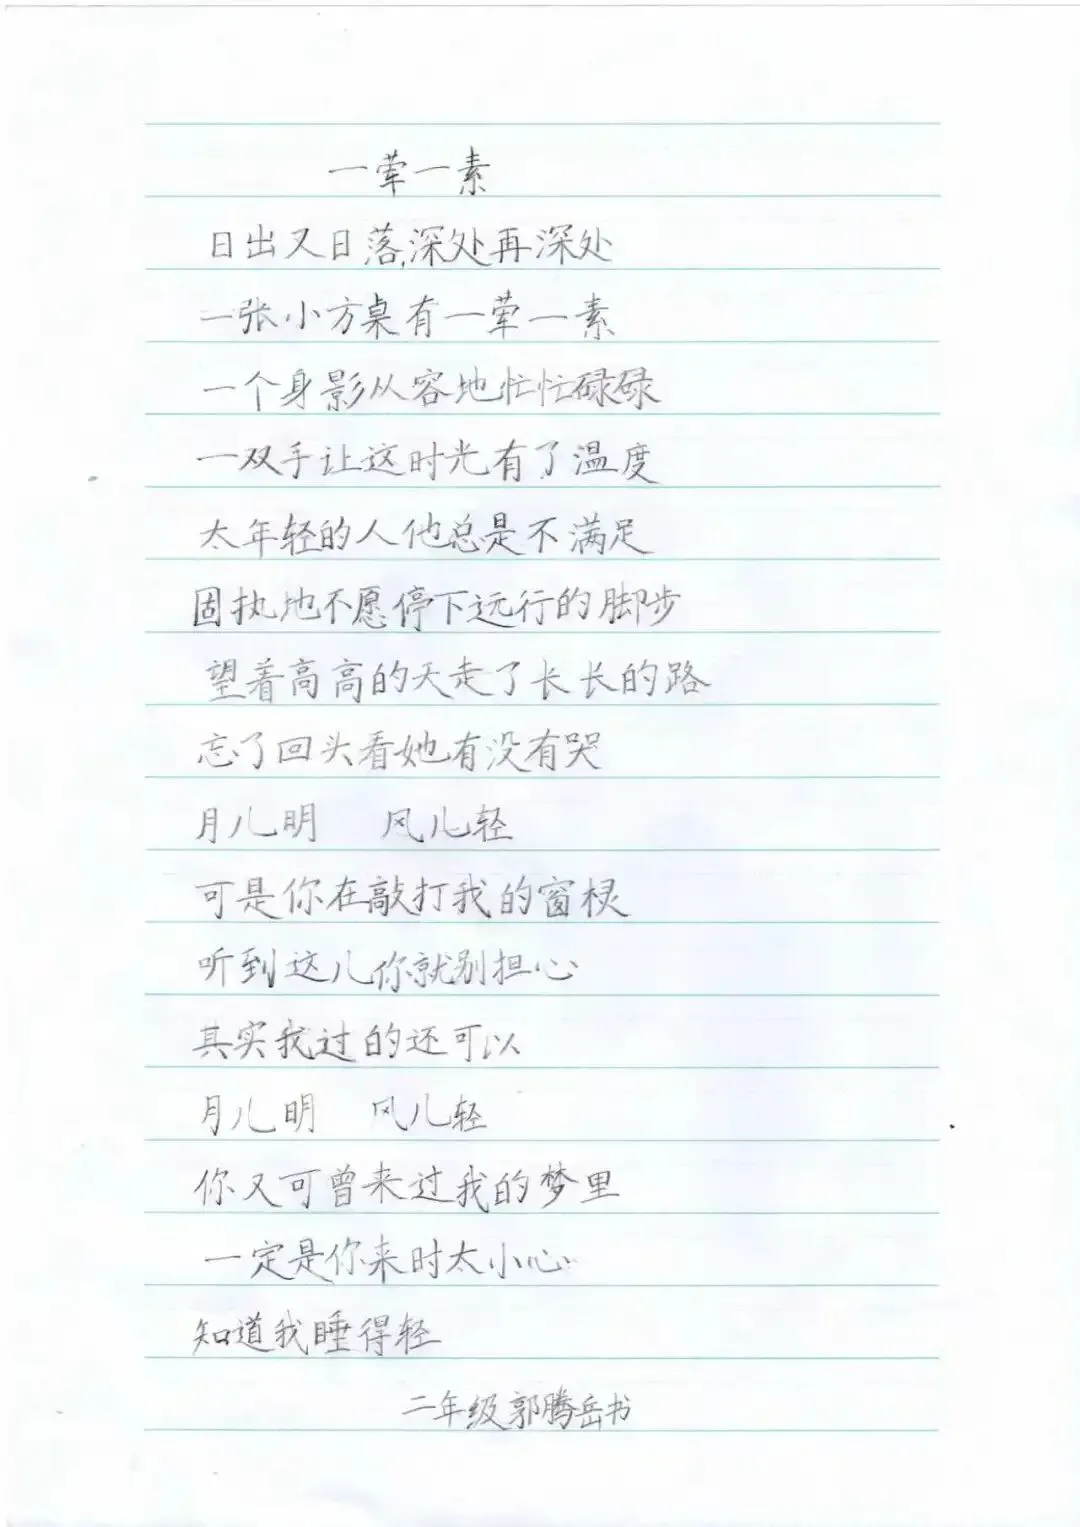 一荤一素
日出又日落,深处再深处
一张小方桌有一荤一素
一个身影从容地忙忙碌碌
一双手让这时光有了温度
太年轻的人他总是不满足
固执地不愿停下远行的脚步
望着高高的天走了长长的路
忘了回头看她有没有哭
月儿明 风儿轻
可是你在敲打我的窗棂
听到这儿你就别担心
其实我过的还可以
月儿明 风儿轻
你又可曾来过我的梦里
一定是你来时太小心
知道我睡得轻
二年级郭腾岳书